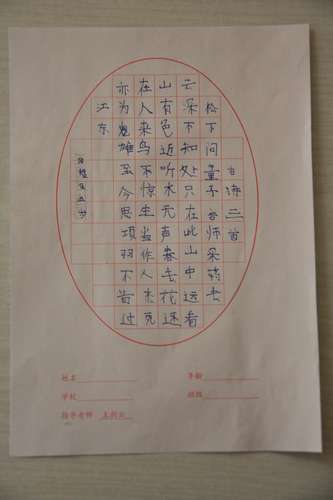 古诗三首
松下问童子言师采药去
云采不知处只在此山中远看
山有色近听水无声春去花还
在人来鸟不惊生当作人杰死
亦为鬼雄至今思项羽不肯过
江东
姓名
年龄
学校
班级
指导老师